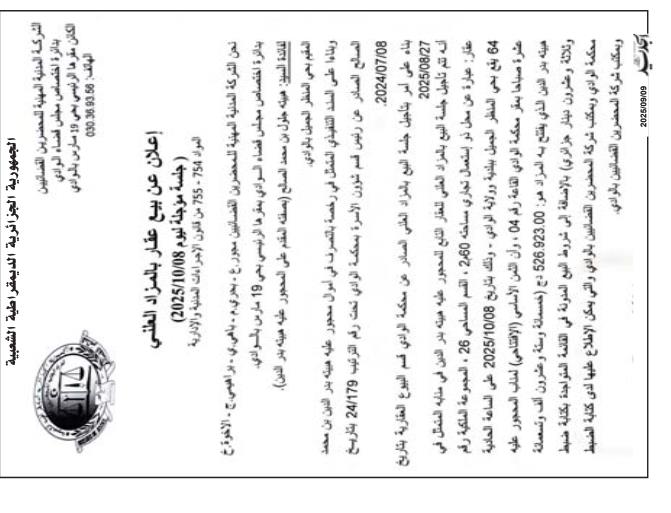 الجمهورية الجزائرية الديمقراطية الشعبية
الشركة المدنية المهنية للمحضرين القضائيين
بدائرة اختصاص مجلس قضاء الوادي
الكائن مقرها الرئيسي بحي 19 مارس بالوادي
الهاتف: 030.36.93.56
إعلان عن بيع عقار بالمزاد العلني
( جلسة مؤجلة ليوم 2025/10/08)
المواد 754 - 755 من قانون الإجراءات المدنية والإدارية
نحن الشركة المدنية المهنية للمحضرين القضائيين مجور.ع ، بحري.م ، باهي.ي ، براهيمي.ج ، الأخوة.ع
بدائرة اختصاص مجلس قضاء الوادي بمقرها الرئيسي بحي 19 مارس بالوادي.
لفائدة السيد: هبيته جلول بن محمد الصالح (بصفته المقدم على المحجور عليه هبيته بدر الدين).
المقيم بحي المنظر الجميل بالوادي.
وبناءا على السند التنفيذي المتمثل في رخصة بالتصرف في أموال محجور عليه هبيته بدر الدين بن محمد
الصالح الصادر عن رئيس قسم شؤون الأسرة بمحكمة الوادي تحت رقم الترتيب 24/179 بتاريخ
2024/07/08.
بناء على أمر بتأجيل جلسة البيع بالمزاد العلني الصادر عن محكمة الوادي قسم البيوع العقارية بتاريخ
2025/08/27
أنه تم تأجيل جلسة البيع بالمزاد العلني للعقار التابع للمحجور عليه هبيته بدر الدين في منابه المتمثل في
عقار: عبارة عن محل ذو إستعمال تجاري مساحته 2,60 ، القسم المساحي 26 ، المجموعة الملكية رقم
64 يقع بحي المنظر الجميل ببلدية وولاية الوادي - وذلك بتاريخ 2025/10/08 على الساعة الحادية
عشرة صباحا بمقر محكمة الوادي القاعة رقم 04 ، وأن الثمن الأساسي (الافتتاحي) لمناب المحجور عليه
هبيته بدر الدين الذي يفتتح به المزاد هو: 526.923.00 دج (خمسمائة وستة وعشرون ألف وتسعمائة
وثلاثة وعشرون دينار جزائري) بالإضافة إلى شروط البيع المدونة في القائمة المتواجدة بكتابة ضبط
محكمة الوادي وبمكتب شركة المحضرين القضائيين بالوادي والتي يمكن الإطلاع عليها لدى كتابة الضبط
وبمكتب شركة المحضرين القضائيين بالوادي.
2025/09/09